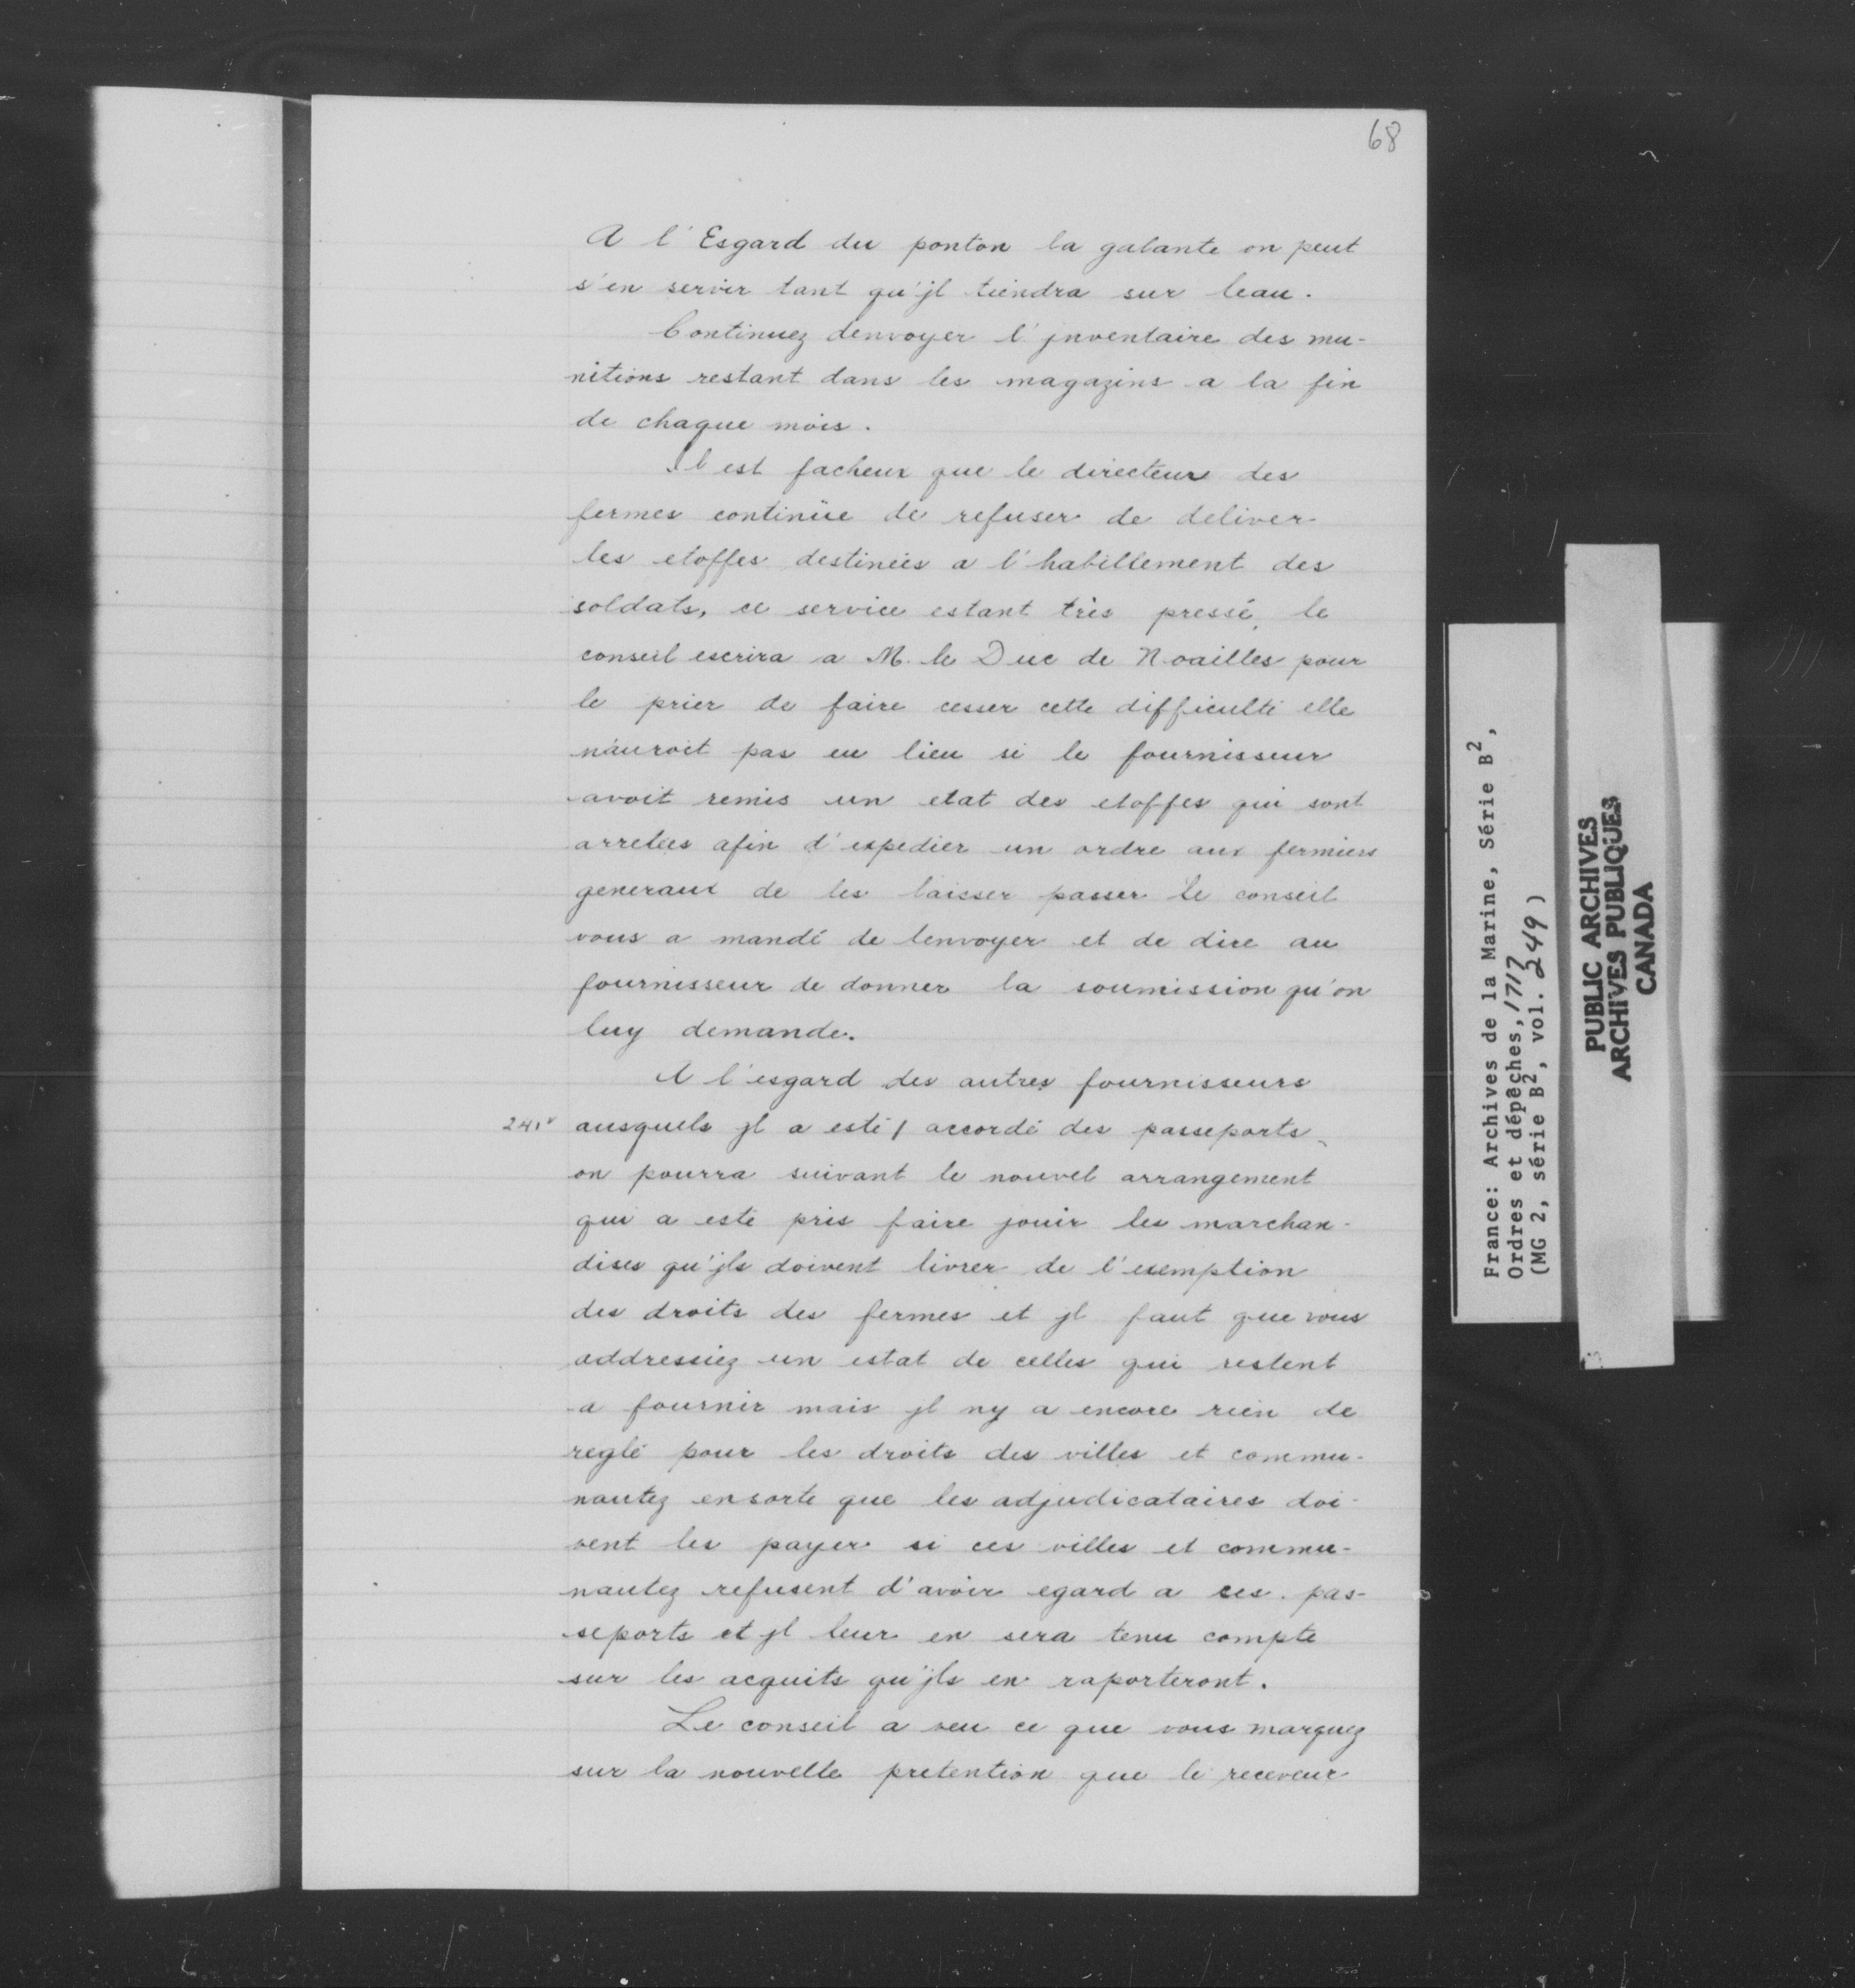 68
A l'Esgard du ponton la galante on peut
s'en servir tant qu'jl tiendra sur leau.
Continuez denvoyer l'jnventaire des mu-
nitions restant dans les magazins a la fin
de chaque mois.
Il est facheux que le directeur des
fermes continüe de refuser de deliver
les etoffes destinées a l'habillement des
soldats, ce service estant très pressé, le
conseil escrira a M. le Duc de Noailles pour
le prier de faire cesser cette difficulté elle
n'auroit pas eu lieu si le fournisseur
avoit remis un etat des etoffes qui sont
arretées afin d'expedier un ordre aux fermiers
generaux de les laisser passer le conseil
vous a mandé de lenvoyer et de dire au
fournisseur de donner la soumission qu'on
luy demande.
A l'esgard des autres fournisseurs
241v ausquels jl a esté / accordé des passeports,
on pourra suivant le nouvel arrangement
qui a esté pris faire jouir les marchan-
dises qu'jls doivent livrer de l'exemption
des droits des fermes et jl faut que vous
addressiez un estat de celles qui restent
a fournir mais jl ny a encore rien de
reglé pour les droits des villes et commu-
nautez ensorte que les adjudicataires doi-
vent les payer si ces villes et commu-
nautez refusent d'avoir egard a ces pas-
seports et jl leur en sera tenu compte
sur les acquits qu'jls en raporteront.
Le conseil a veu ce que vous marquez
sur la nouvelle pretention que le receveur
France: Archives de la Marine, Série B2,
Ordres et dépêches, 1717
(MG 2, série B2, vol. 249)
PUBLIC ARCHIVES
ARCHIVES PUBLIQUES
CANADA